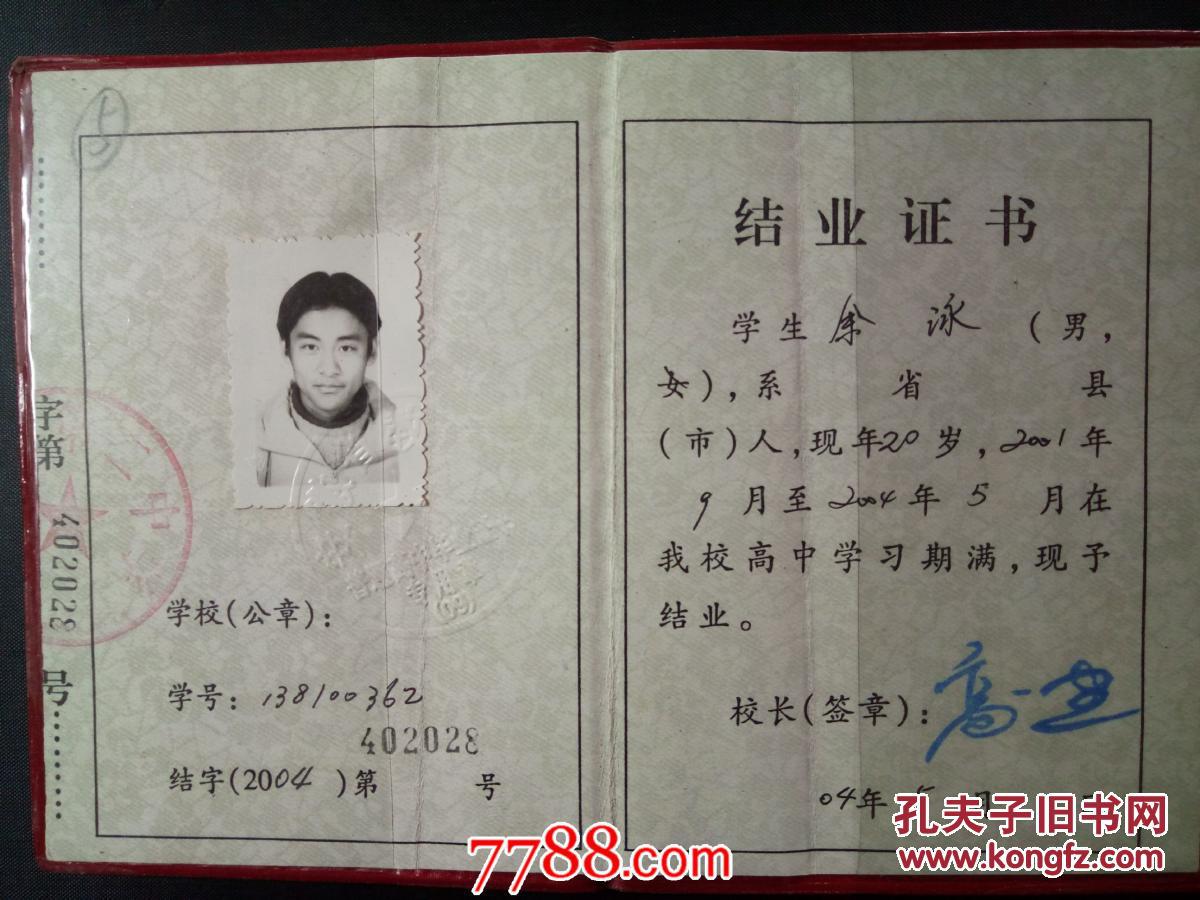 字第
402028
号
中
学校(公章):
学号: 138100362
402028
结字(2004)第 号
结业证书
学生 余 泳 (男,
女),系 省 县
(市)人,现年20岁,2001年
9月至2004年5月在
我校高中学习期满,现予
结业。
校长(签章):
04年5月
7788.com
孔夫子旧书网
www.kongfz.com